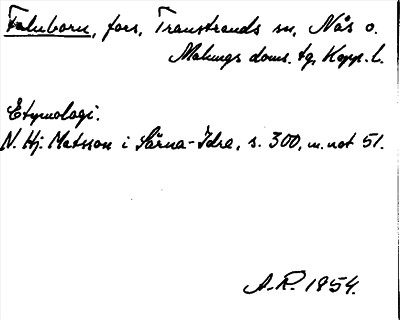 Faluborn, fors, Transtrands sn, Nås o.
Malungs doms. tg, Kopp. l.
Etymologi.
N. Hj. Matsson i Särna-Idre, s. 300, m. not 51.
A.R. 1954.